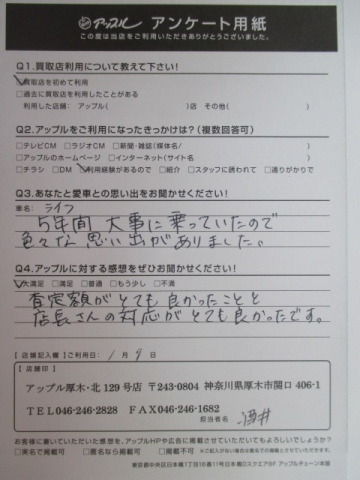 アップル アンケート用紙
この度は当店をご利用いただきありがとうございました。
Q1.買取店利用について教えて下さい!
☑買取店を初めて利用
□過去に買取店を利用したことがある
利用した店舗: アップル( )店 その他( )
Q2.アップルをご利用になったきっかけは?(複数回答可)
□テレビCM □ラジオCM □新聞・雑誌(媒体名/ )
□アップルのホームページ □インターネット(サイト名 )
□チラシ □DM ☑利用経験があるので □紹介 □スタッフに誘われて □通りがかりで
Q3.あなたと愛車との思い出をお聞かせください!
車名: ライフ
5年間 大事に乗っていたので
色々な思い出がありました。
Q4.アップルに対する感想をぜひお聞かせください!
☑大満足 □満足 □普通 □もう少し □不満
査定額がとても良かったことと
店長さんの対応がとても良かったです。
【店舗記入欄】ご利用日: 1月9日
【店舗印】
アップル厚木・北129号店 〒243-0804 神奈川県厚木市関口406-1
TEL046-246-2828 FAX046-246-1682
担当者名 酒井
お客様に書いていただいた感想を、アップルHPや広告に掲載させていただいてもよろしいでしょうか?
□実名で掲載可 □匿名なら掲載可 □掲載不可
東京都中央区日本橋1丁目16番11号日本橋DスクエアBF アップルチェーン本部